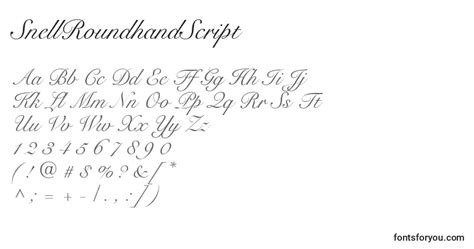 SnellRoundhandScript
Aa Bb Cc Dd Ee Ff Gg Hh Ii Jj
Kk Ll Mm Nn Oo Pp Qq Rr Ss Tt
Uu Vv Ww Xx Yy Zz
1 2 3 4 5 6 7 8 9 0
( ! @ # $ % ? & [ *
^ ; = + - / . , : )
fontsforyou.com